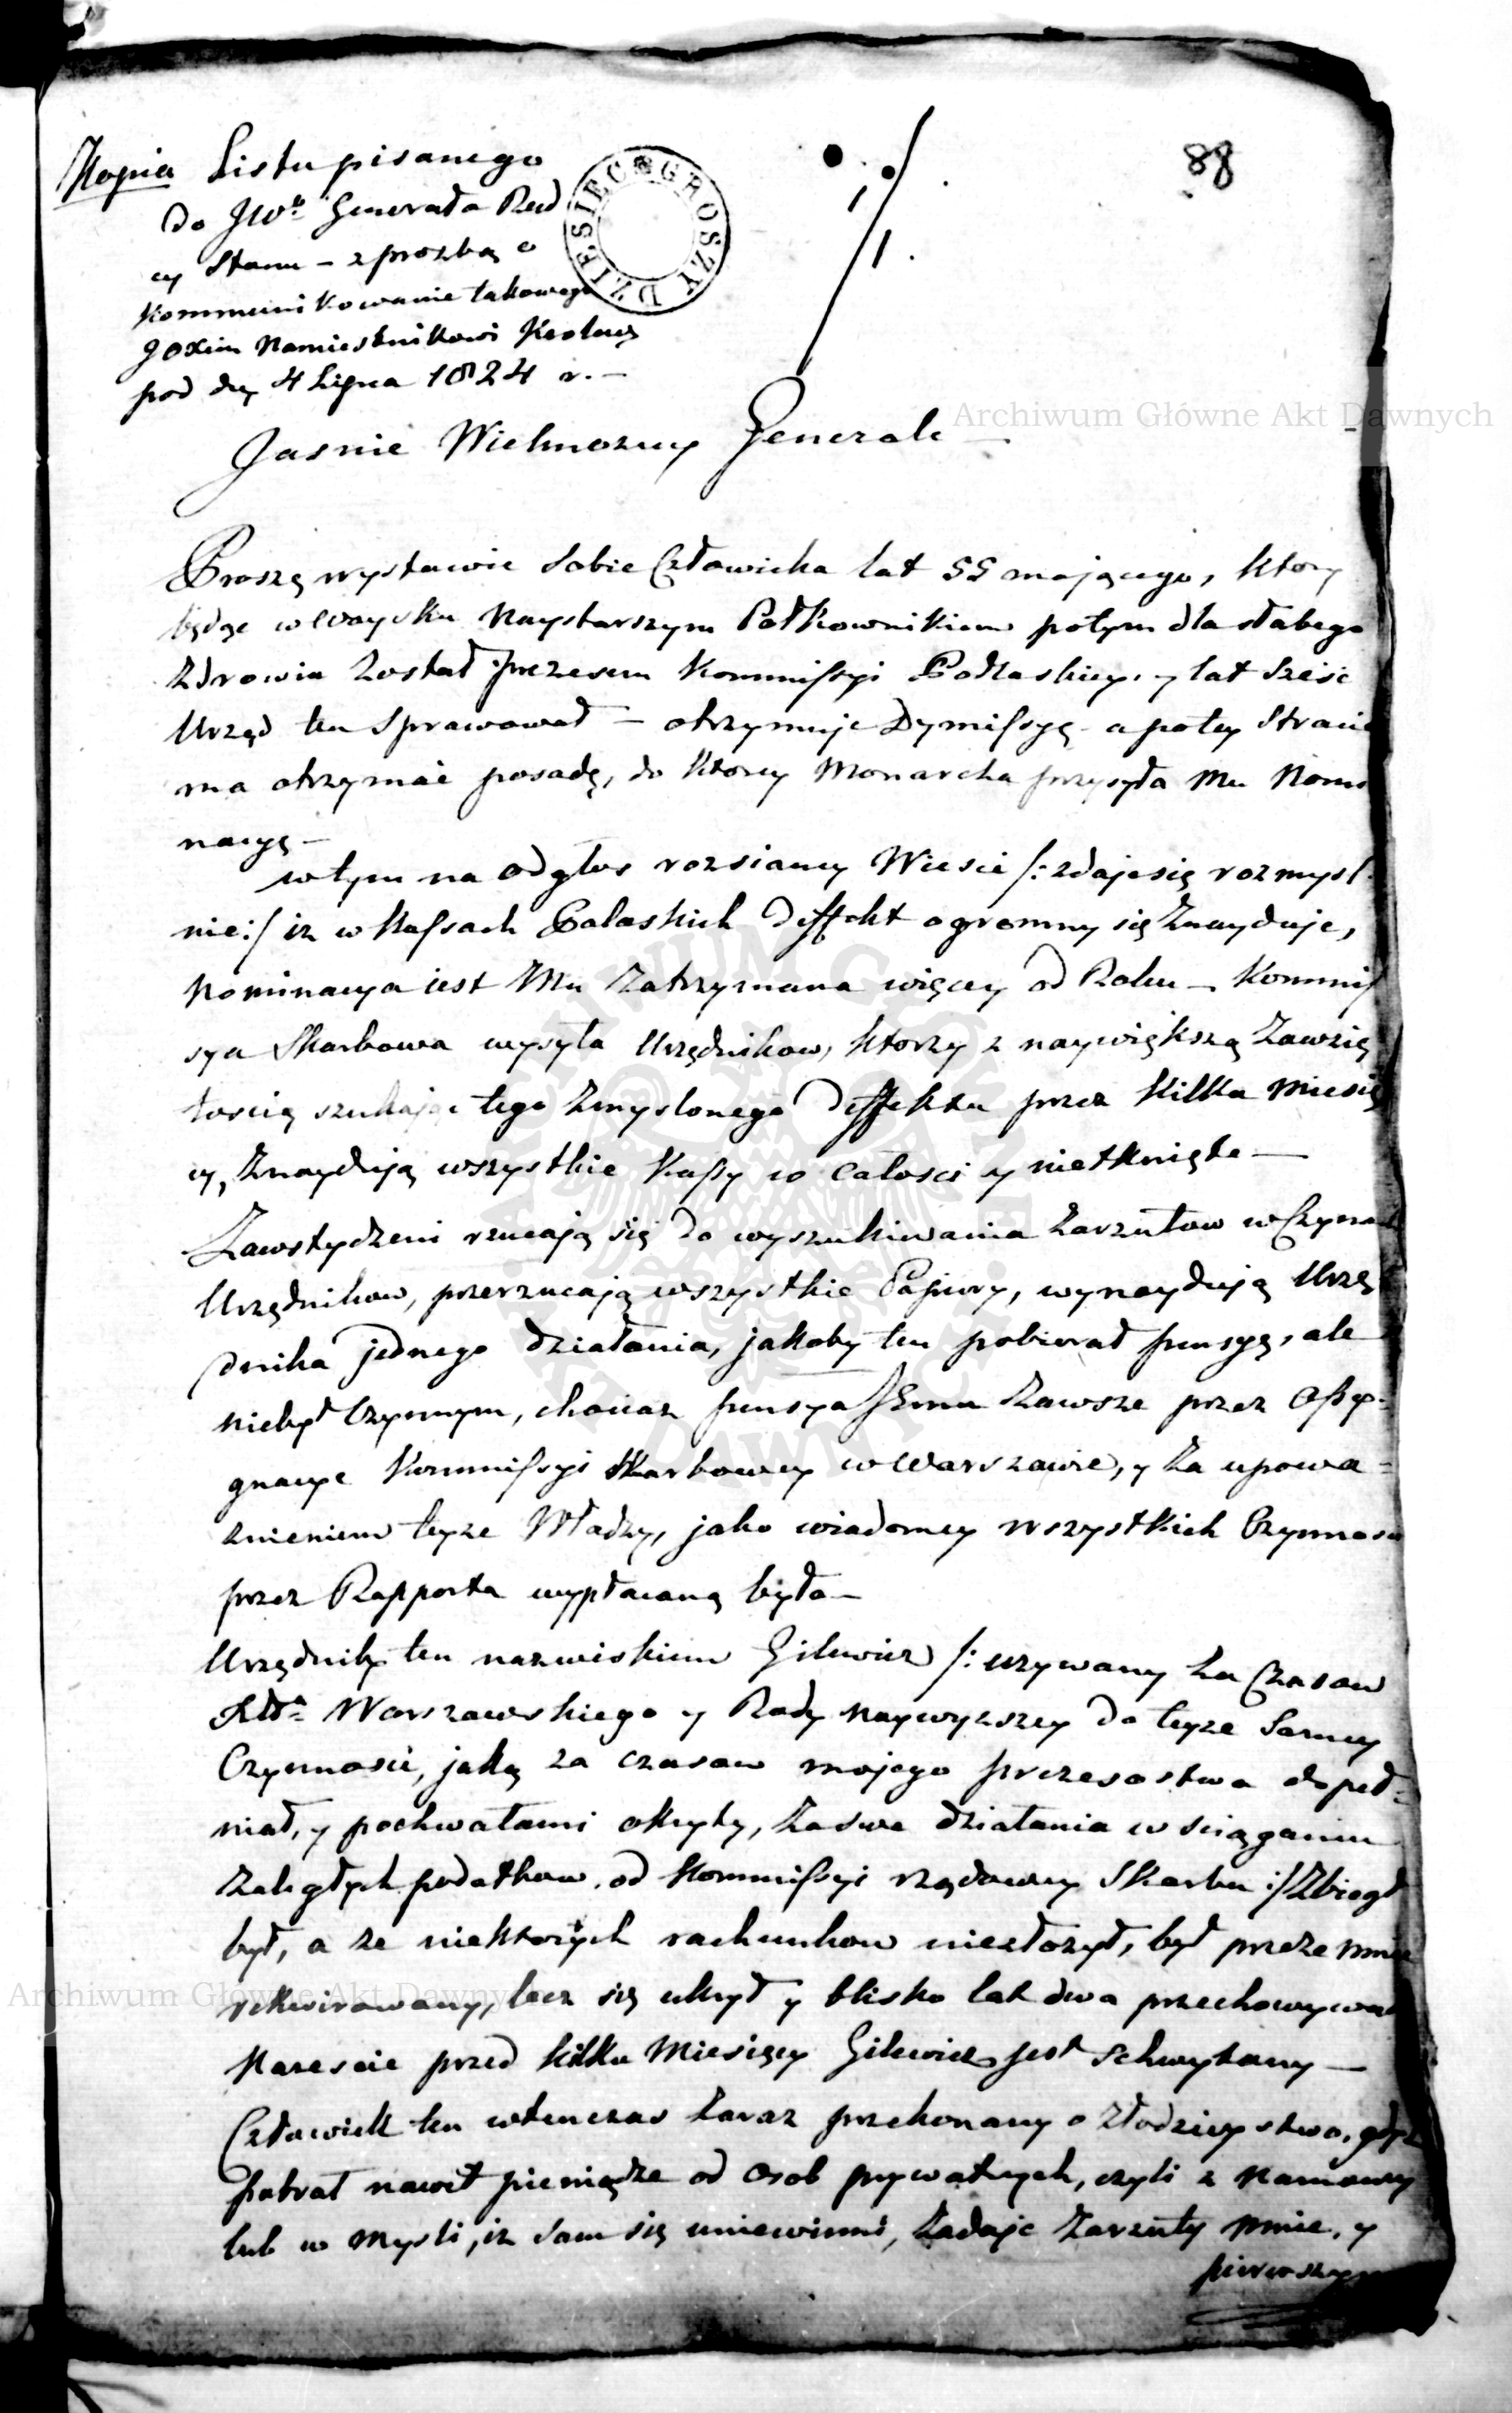 88
Kopia Listu pisanego
do JWo Generała Rad
cy Stanu – z prozbą o
kommunikowanie takowego
JOXciu Namiestnikowi Krolews
pod dniem 4 Lipca 1824 r. –
DZIESIĘC GROSZY
Jasnie Wielmozny Generale –
Proszę wystawić Sobie Człowieka lat 55 mającego, ktory
będąc w Woysku Naystarszym Połkownikiem potym dla słabego
Zdrowia Został Prezesem Kommissyi Podlaskiey, y lat Sześć
Urząd ten Sprawował – otrzymuje Dymissyą – a potey Stracie
ma otrzymać posadę, do ktorey Monarcha przysyła Mu Nomi
nacyą –
w tym na odgłos rozsianey Wiesci /: zdaje się rozmysl
nie :/ iz w Kassach Podlaskich Deffekt ogromny się Znayduje,
Nominacya iest Mu Zatrzymana więcey od Roku – Kommis
sya Skarbowa wysyła Urzędnikow, ktorzy z naywiększą Zawzię
toscią szukając tego Zmyslonego Deffektu przez kilka Miesię
cy, Znayduią wszystkie Kassy w całosci y nietknięte –
Zawstydzeni rzucają się do wyszukiwania Zarzutow w Czynach
Urzędnikow, przerzucają wszystkie Papiery, wynayduią Urzę
dnika jednego działania, jakoby ten pobierał pensyą, ale
niebył Czynnym, chociaz pensya JEmu Zawsze przez Assy-
gnacye Kommissyi Skarbowey w Warszawie, y Za upowa-
znieniem teyze Władzy, jako wiadomey wszystkich Czynnosci
przez Rapporta wypłacaną była –
Urzędnik ten nazwiskiem Gilewicz /: uzywany Za Czasow
Warszawskiego y Rady Naywyzszey do teyze Samey
Czynnosci, jaką za czasow mojego Prezesostwa dopeł-
niał, y pochwałami okryty, Za swe działania w sciąganiu
Zaległych podatkow, od Kommissyi rządowey Skarbu :/ Zbiegł
był, a ze niektorych rachunkow niezłozył, był przezemnie
rekwirowany, lecz się ukrył y blisko lat dwa przechowywał
Narescie przed kilku Miesięcy Gilewicz jest Schwytany –
Człowiek ten wtenczas Zaraz przekonany o złodzieystwo, gdyz
pobrał nawet pieniądze od Osob prywatnych, czyli z Namowy
lub w mysli, iz Sam się uniewinni, Zadaje Zarzuty Mnie, y
pierwszym
Archiwum Główne Akt Dawnych
Archiwum Główne Akt Dawnych